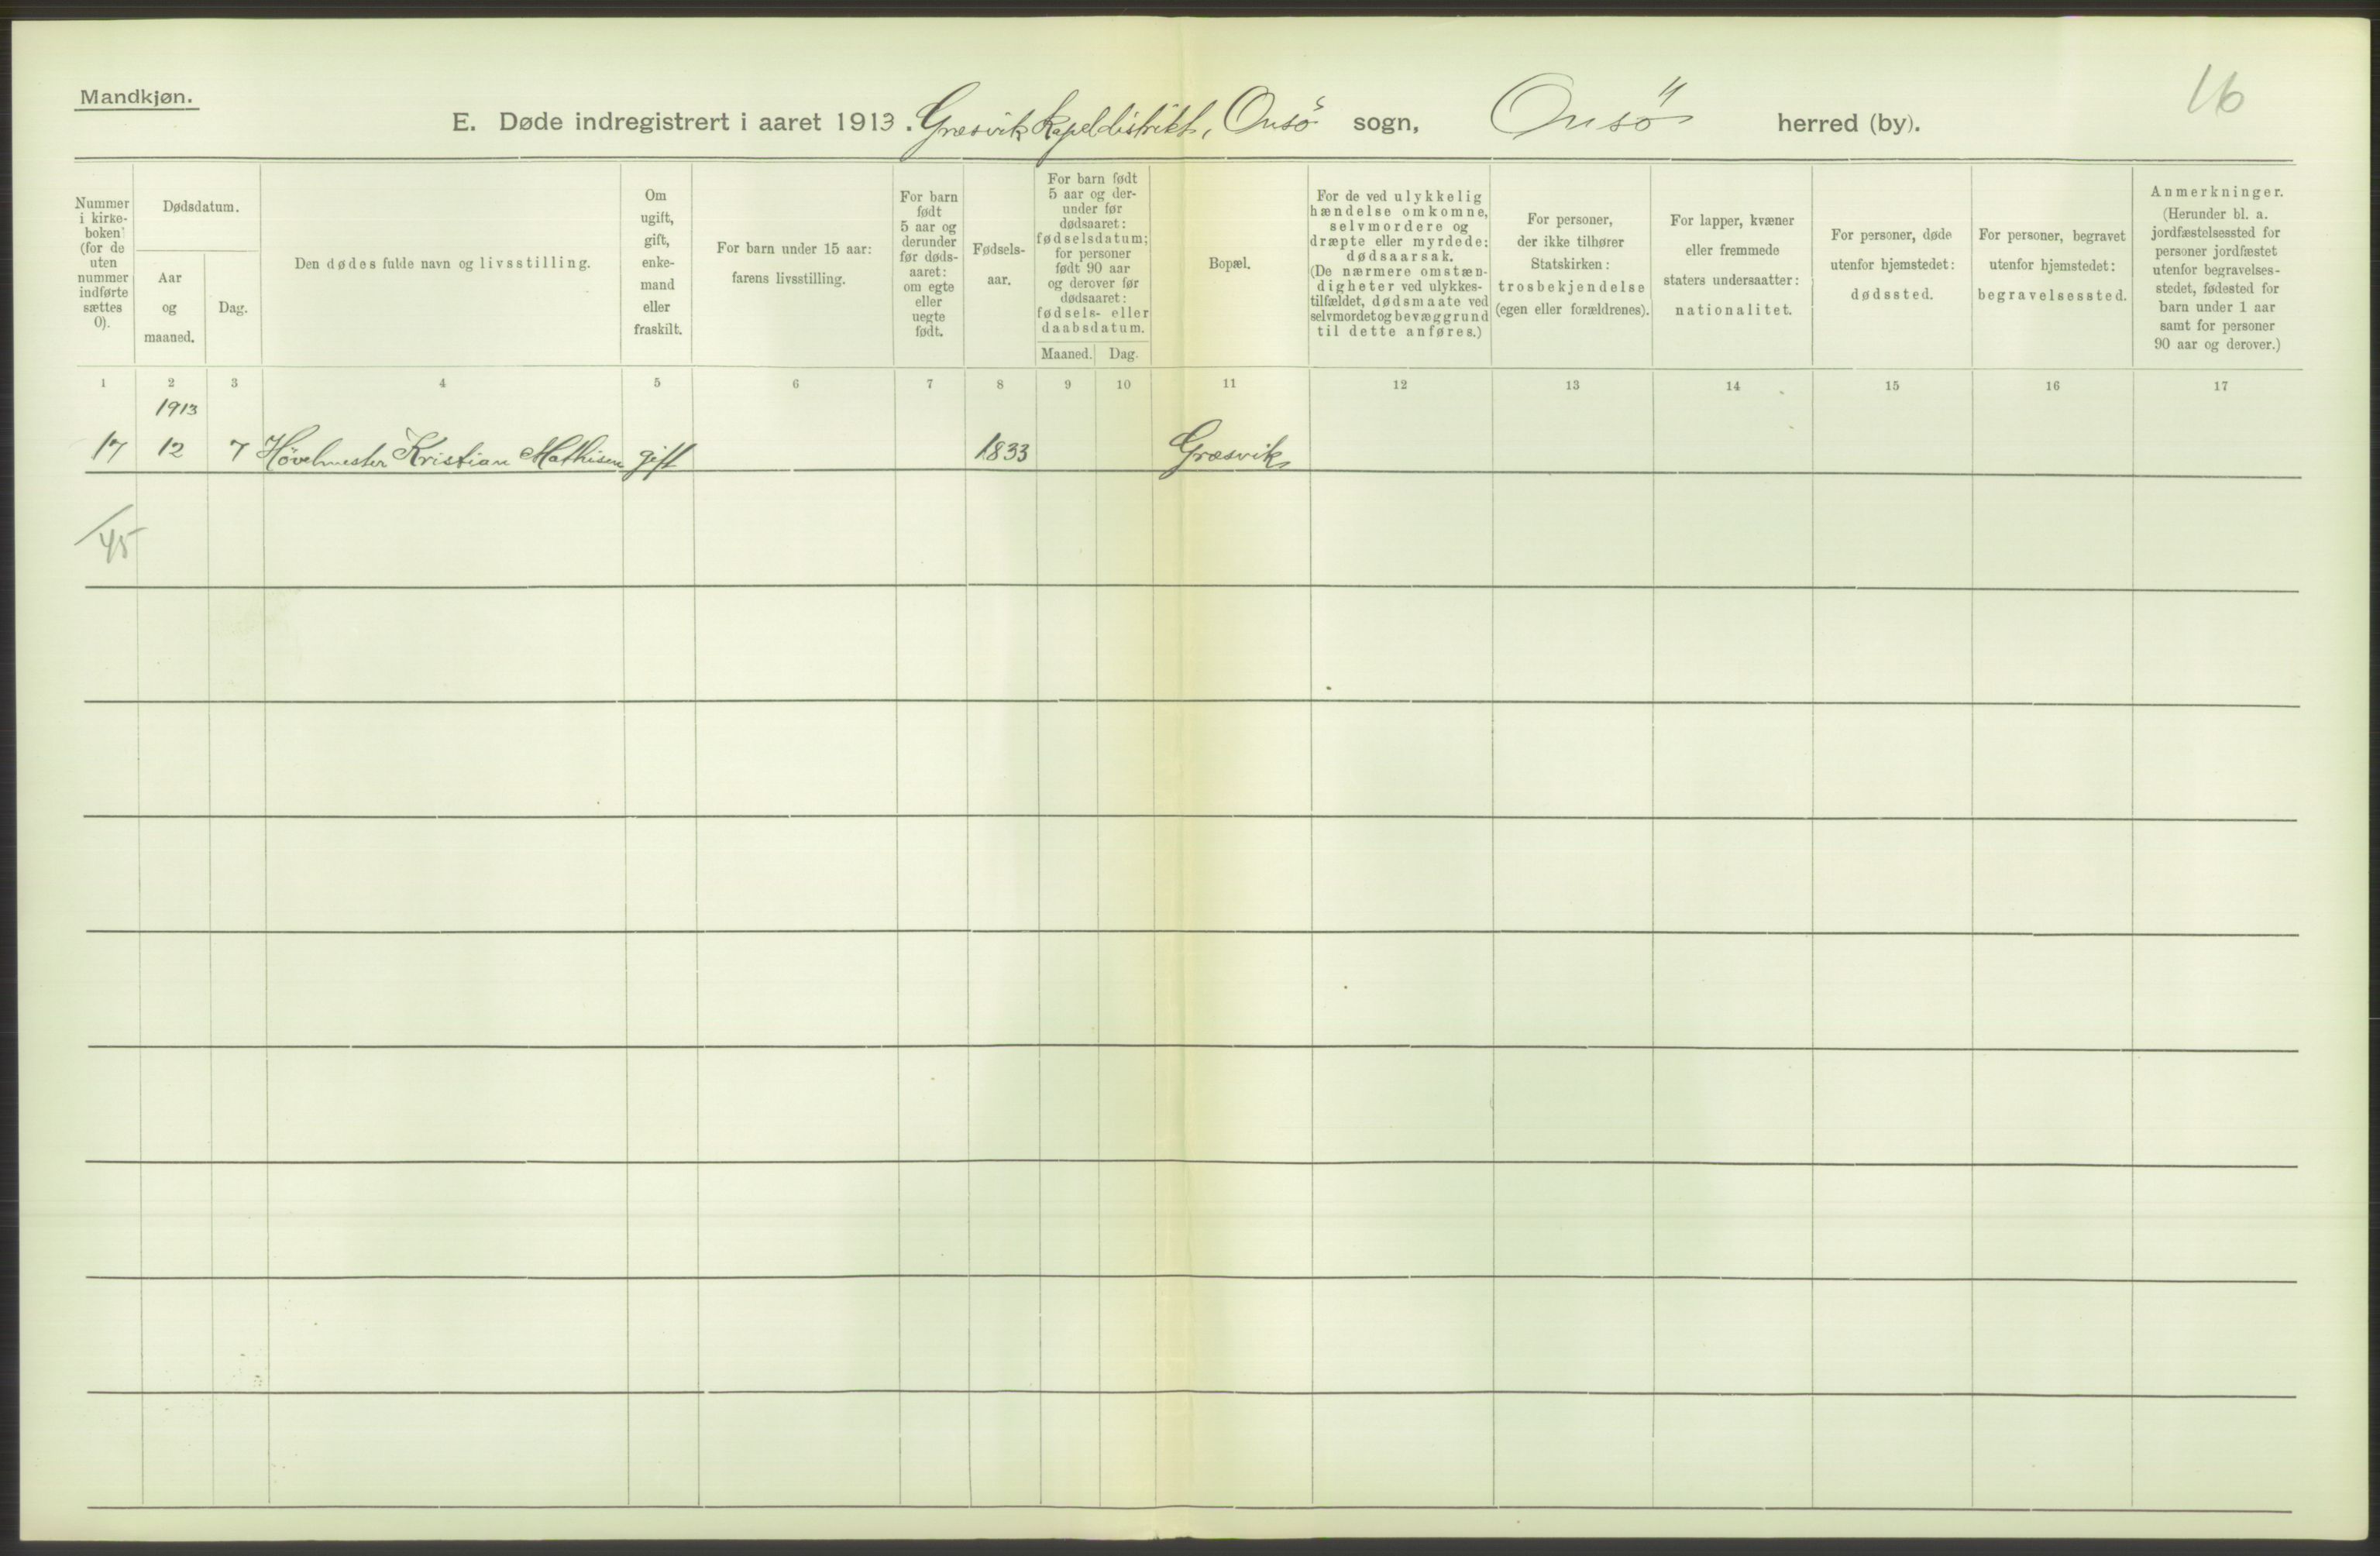 Mandkjøn.
16
E. Døde indregistrert i aaret 1913. Græsvik Kapeldistrikt, Onsö sogn, Onsö herred (by).
Nummer i kirke-boken (for de uten nummer indførte sættes 0).
Dødsdatum.
Aar og maaned.
Dag.
Den dødes fulde navn og livsstilling.
Om ugift, gift, enke-mand eller fraskilt.
For barn under 15 aar: farens livsstilling.
For barn født 5 aar og derunder før døds-aaret: om egte eller uegte født.
Fødsels-aar.
For barn født 5 aar og der-under før dødsaaret: fødselsdatum; for personer født 90 aar og derover før dødsaaret: fødsels- eller daabsdatum.
Maaned. Dag.
Bopæl.
For de ved ulykkelig hændelse omkomne, selvmordere og dræpte eller myrdede: dødsaarsak. (De nærmere omstæn-digheter ved ulykkes-tilfældet, dødsmaate ved selvmordet og bevæggrund til dette anføres.)
For personer, der ikke tilhører Statskirken: trosbekjendelse (egen eller forældrenes).
For lapper, kvæner eller fremmede staters undersaatter: nationalitet.
For personer, døde utenfor hjemstedet: dødssted.
For personer, begravet utenfor hjemstedet: begravelsessted.
Anmerkninger. (Herunder bl. a. jordfæstelsessted for personer jordfæstet utenfor begravelses-stedet, fødested for barn under 1 aar samt for personer 90 aar og derover.)
1 2 3 4 5 6 7 8 9 10 11 12 13 14 15 16 17
1913
17 12 7 Hövelmester Kristian Mathisen gift 1833 Græsvik
45